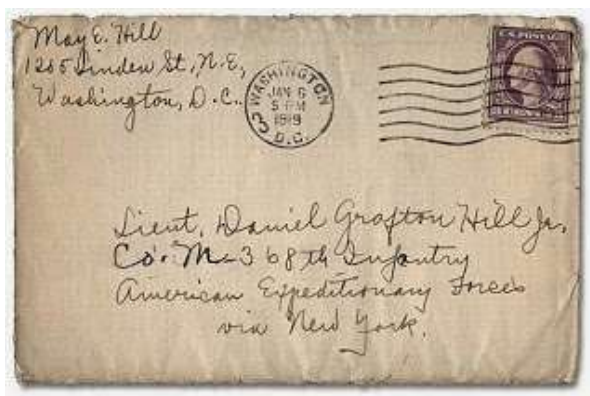 May E. Hill
1205 Linden St., N.E.,
Washington, D.C.
WASHINGTON
JAN 6
5 PM
1919
D.C.
3
U.S. POSTAGE
Lieut. Daniel Grafton Hill Jr.
Co. M - 368th Infantry
American Expeditionary Forces
via New York.